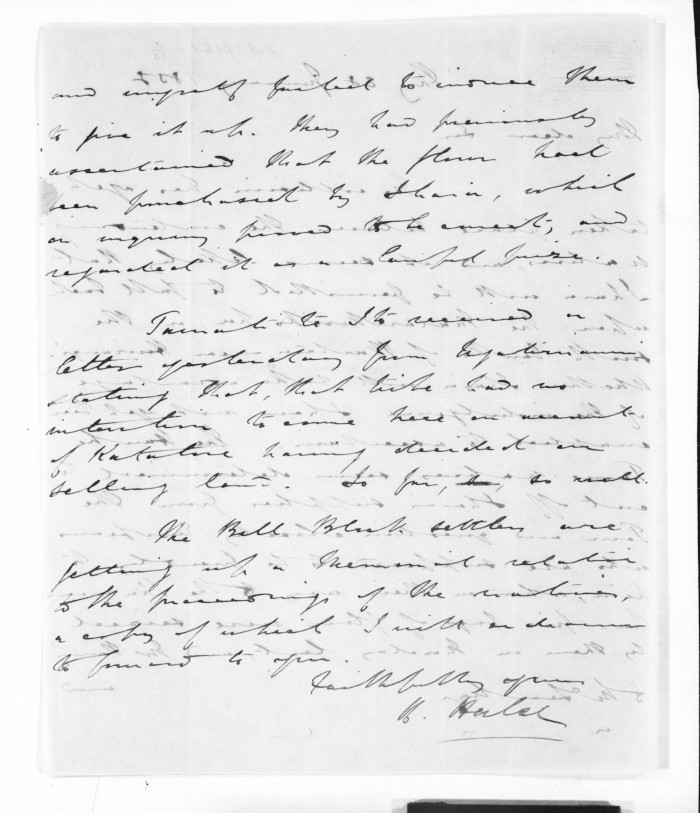 and myself failed to induce them
to give it up. They had previously
ascertained that the flour had
been purchased by Ihaia, which
on inquiry proved to be correct, and
regarded it as a lawful prize.
Tamati te Ito received a
letter yesterday from Ngatimaniapoto
stating that, that tribe had no
intention to come here on account
of Katatore having decided on
selling land. So far, so well.
The Bell Block settlers are
getting up a Memorial relative
to the proceedings of the natives,
a copy of which I will endeavour
to forward to you.
Faithfully yours
H. Halse